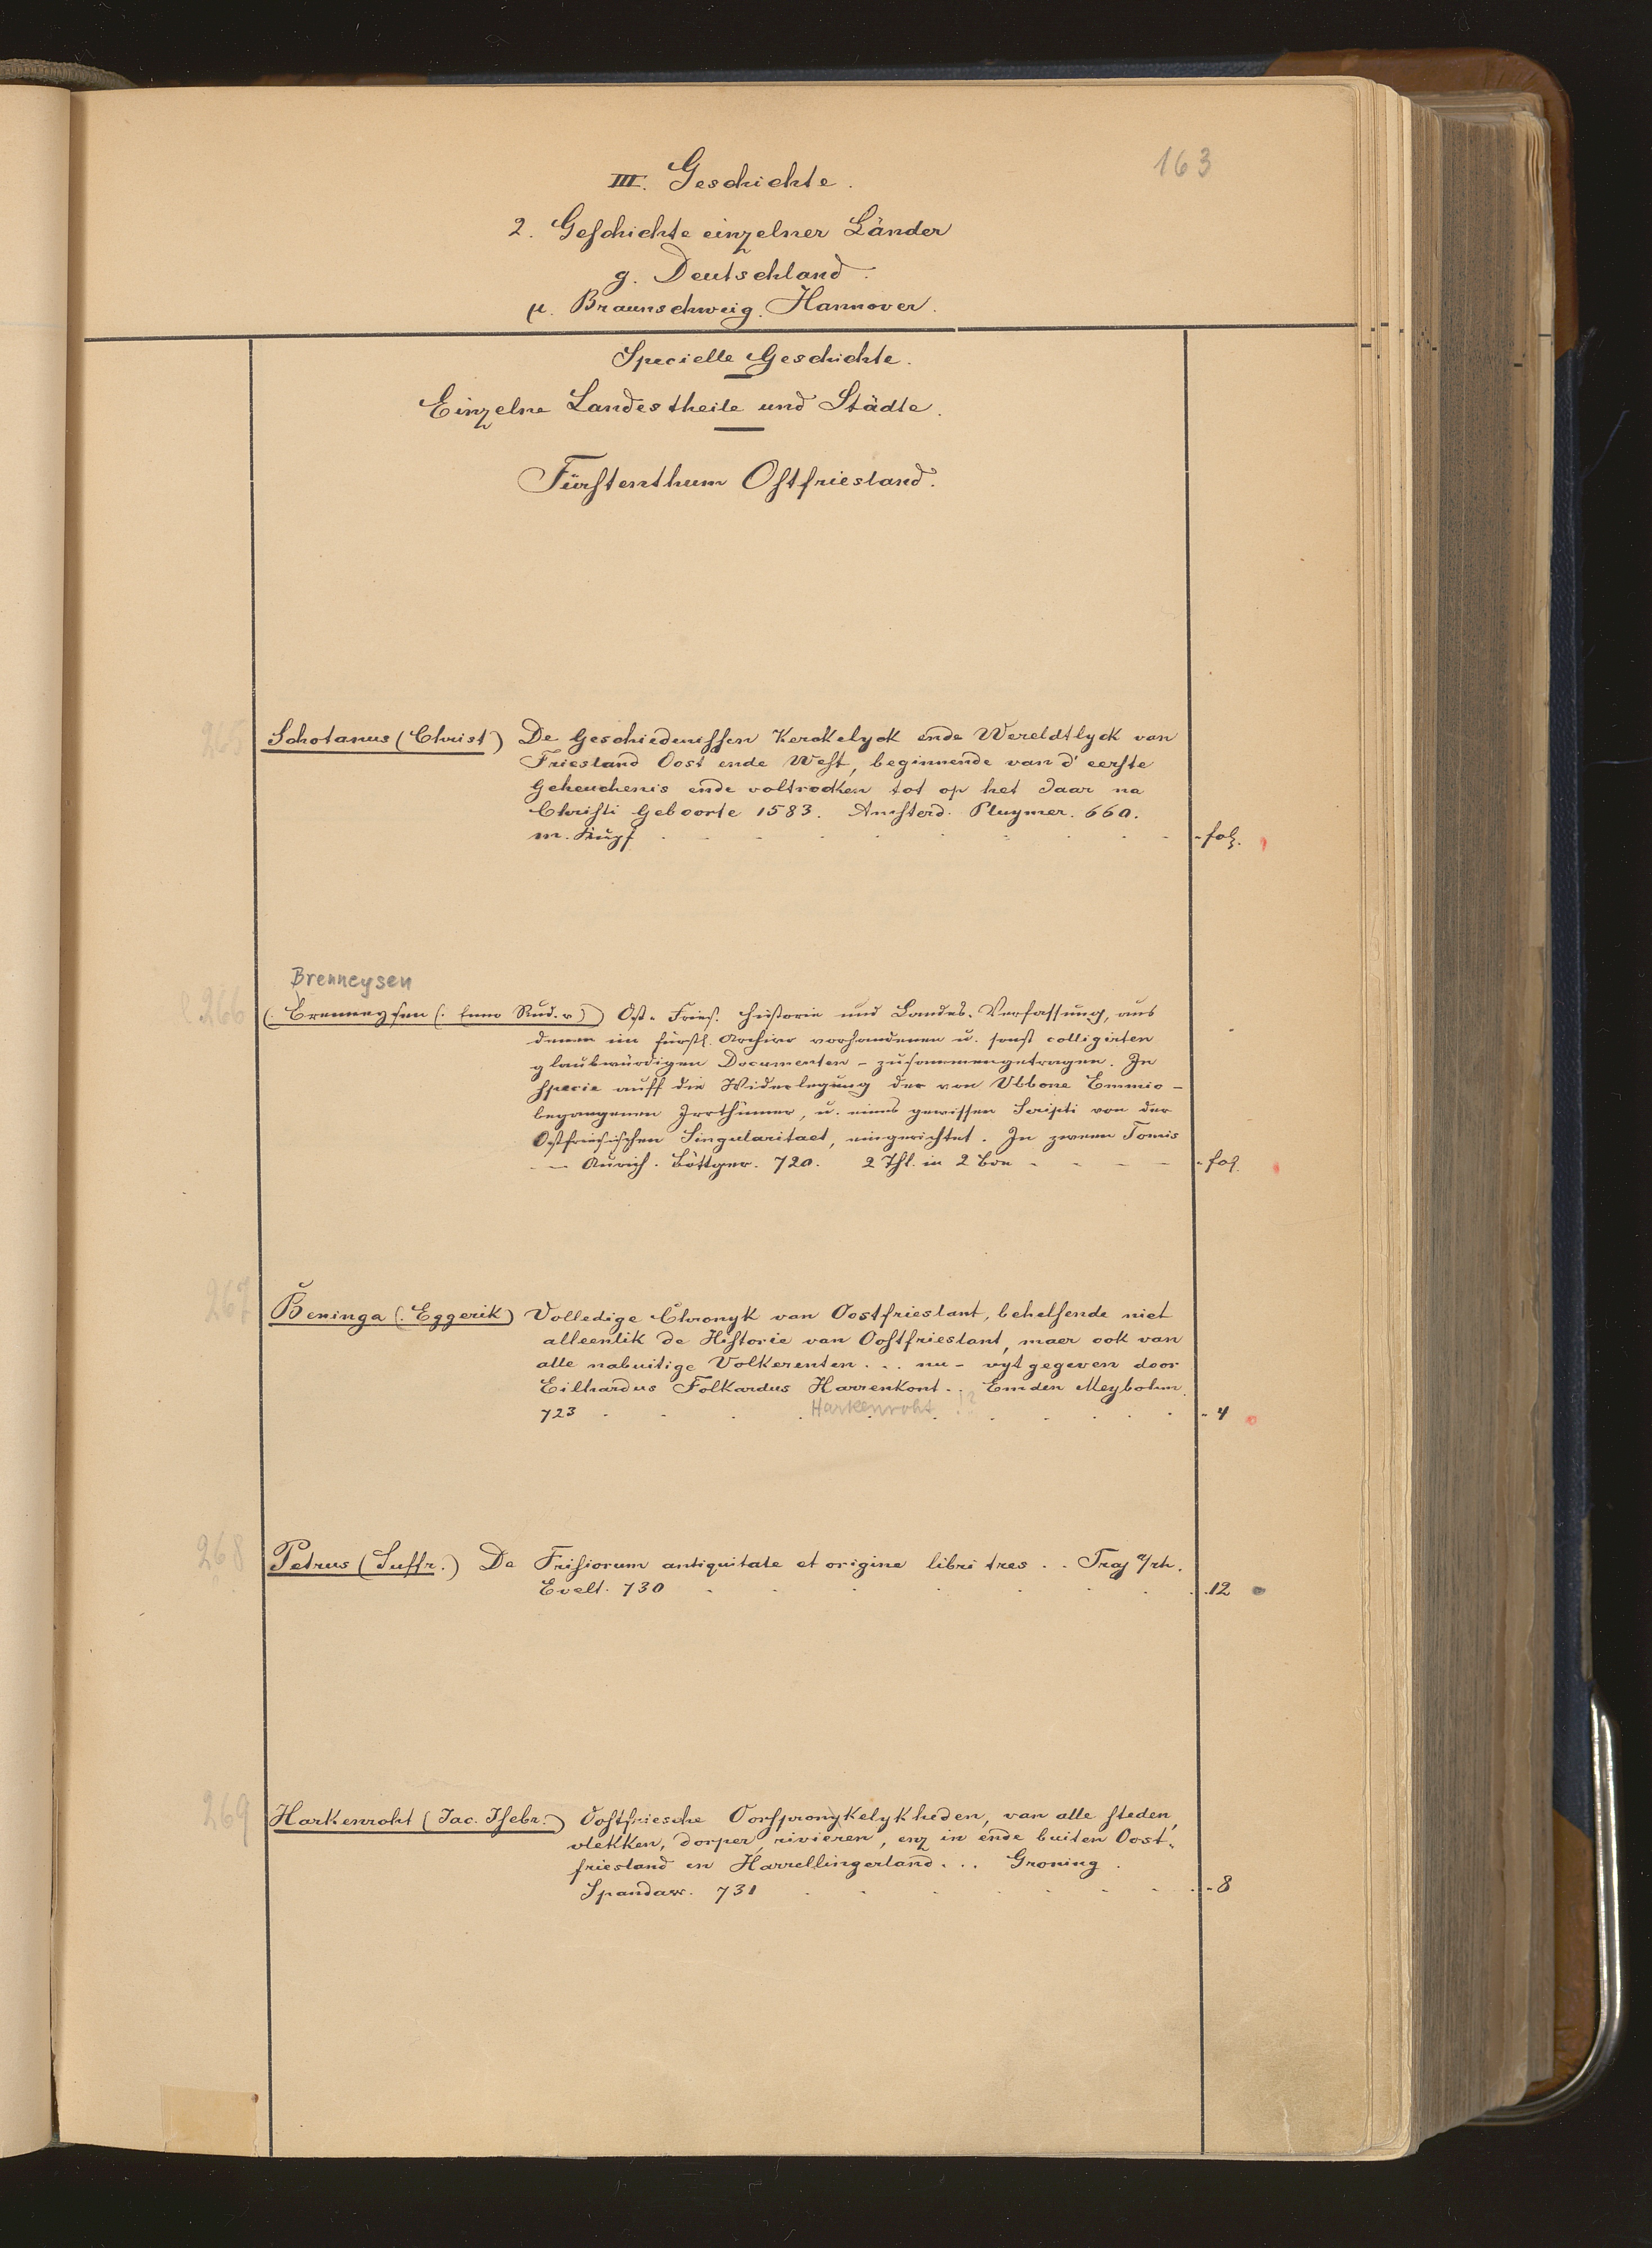 163
III. Geschichte.
2. Geschichte einzelner Länder
g. Deutschland.
μ. Braunschweig. Hannover.
Specielle Geschichte.
Einzelne Landestheile und Städte.
Fürstenthum Ostfriesland.
265 Schotanus (Christ) De Geschiedenissen Kerckelyck ende Wereldtlyck van
Friesland Oost ende West, beginnende van d' eerste
Geheuchenis ende voltrocken tot op het Jaar na
Christi Geboorte 1583. Amsterd. Pluymer. 660.
m. Kupf. - fol.
Brenneysen
266 (. Brenneysen (. Enno Rud. .)) Ost-Fries. Historie und Landes-Verfassung, aus
denen im fürstl. Archiv vorhandenen u. sonst colligirten
glaubwürdigen Documenten - zusammengetragen. In
specie auff die Widerlegung der von Ubbone Emmio -
begangenen Irrthümer, u. eines gewissen Scripti von der
Ostfriesischen Singularitaet, eingerichtet. In zween Tomis
- - Aurich. Böttger. 720. 2 Thl. in 2 Bde - fol.
267 Beninga (. Eggerik) Volledige Chronyk van Oostfrieslant, behelsende niet
alleenlik de Historie van Oostfrieslant, maer ook van
alle nabuitige Volkerenten ... nu - uyt gegeven door
Eilhardus Folkardus Harrenkont .. Emden Meybohm.
723 Harkenroht !? - 4
268 Petrus (Suffr.) De Frisiorum antiquitate et origine libri tres .. Traj a/rh.
Evelt. 730 . 12
269 Harkenroht (Jac. Isebr.) Oostfriesche Oorspronykelykheden, van alle steden,
vlekken, dorper, rivieren, enz in ende buiten Oost-
friesland en Harrellingerland ... Groning.
Spandaw. 731 - 8